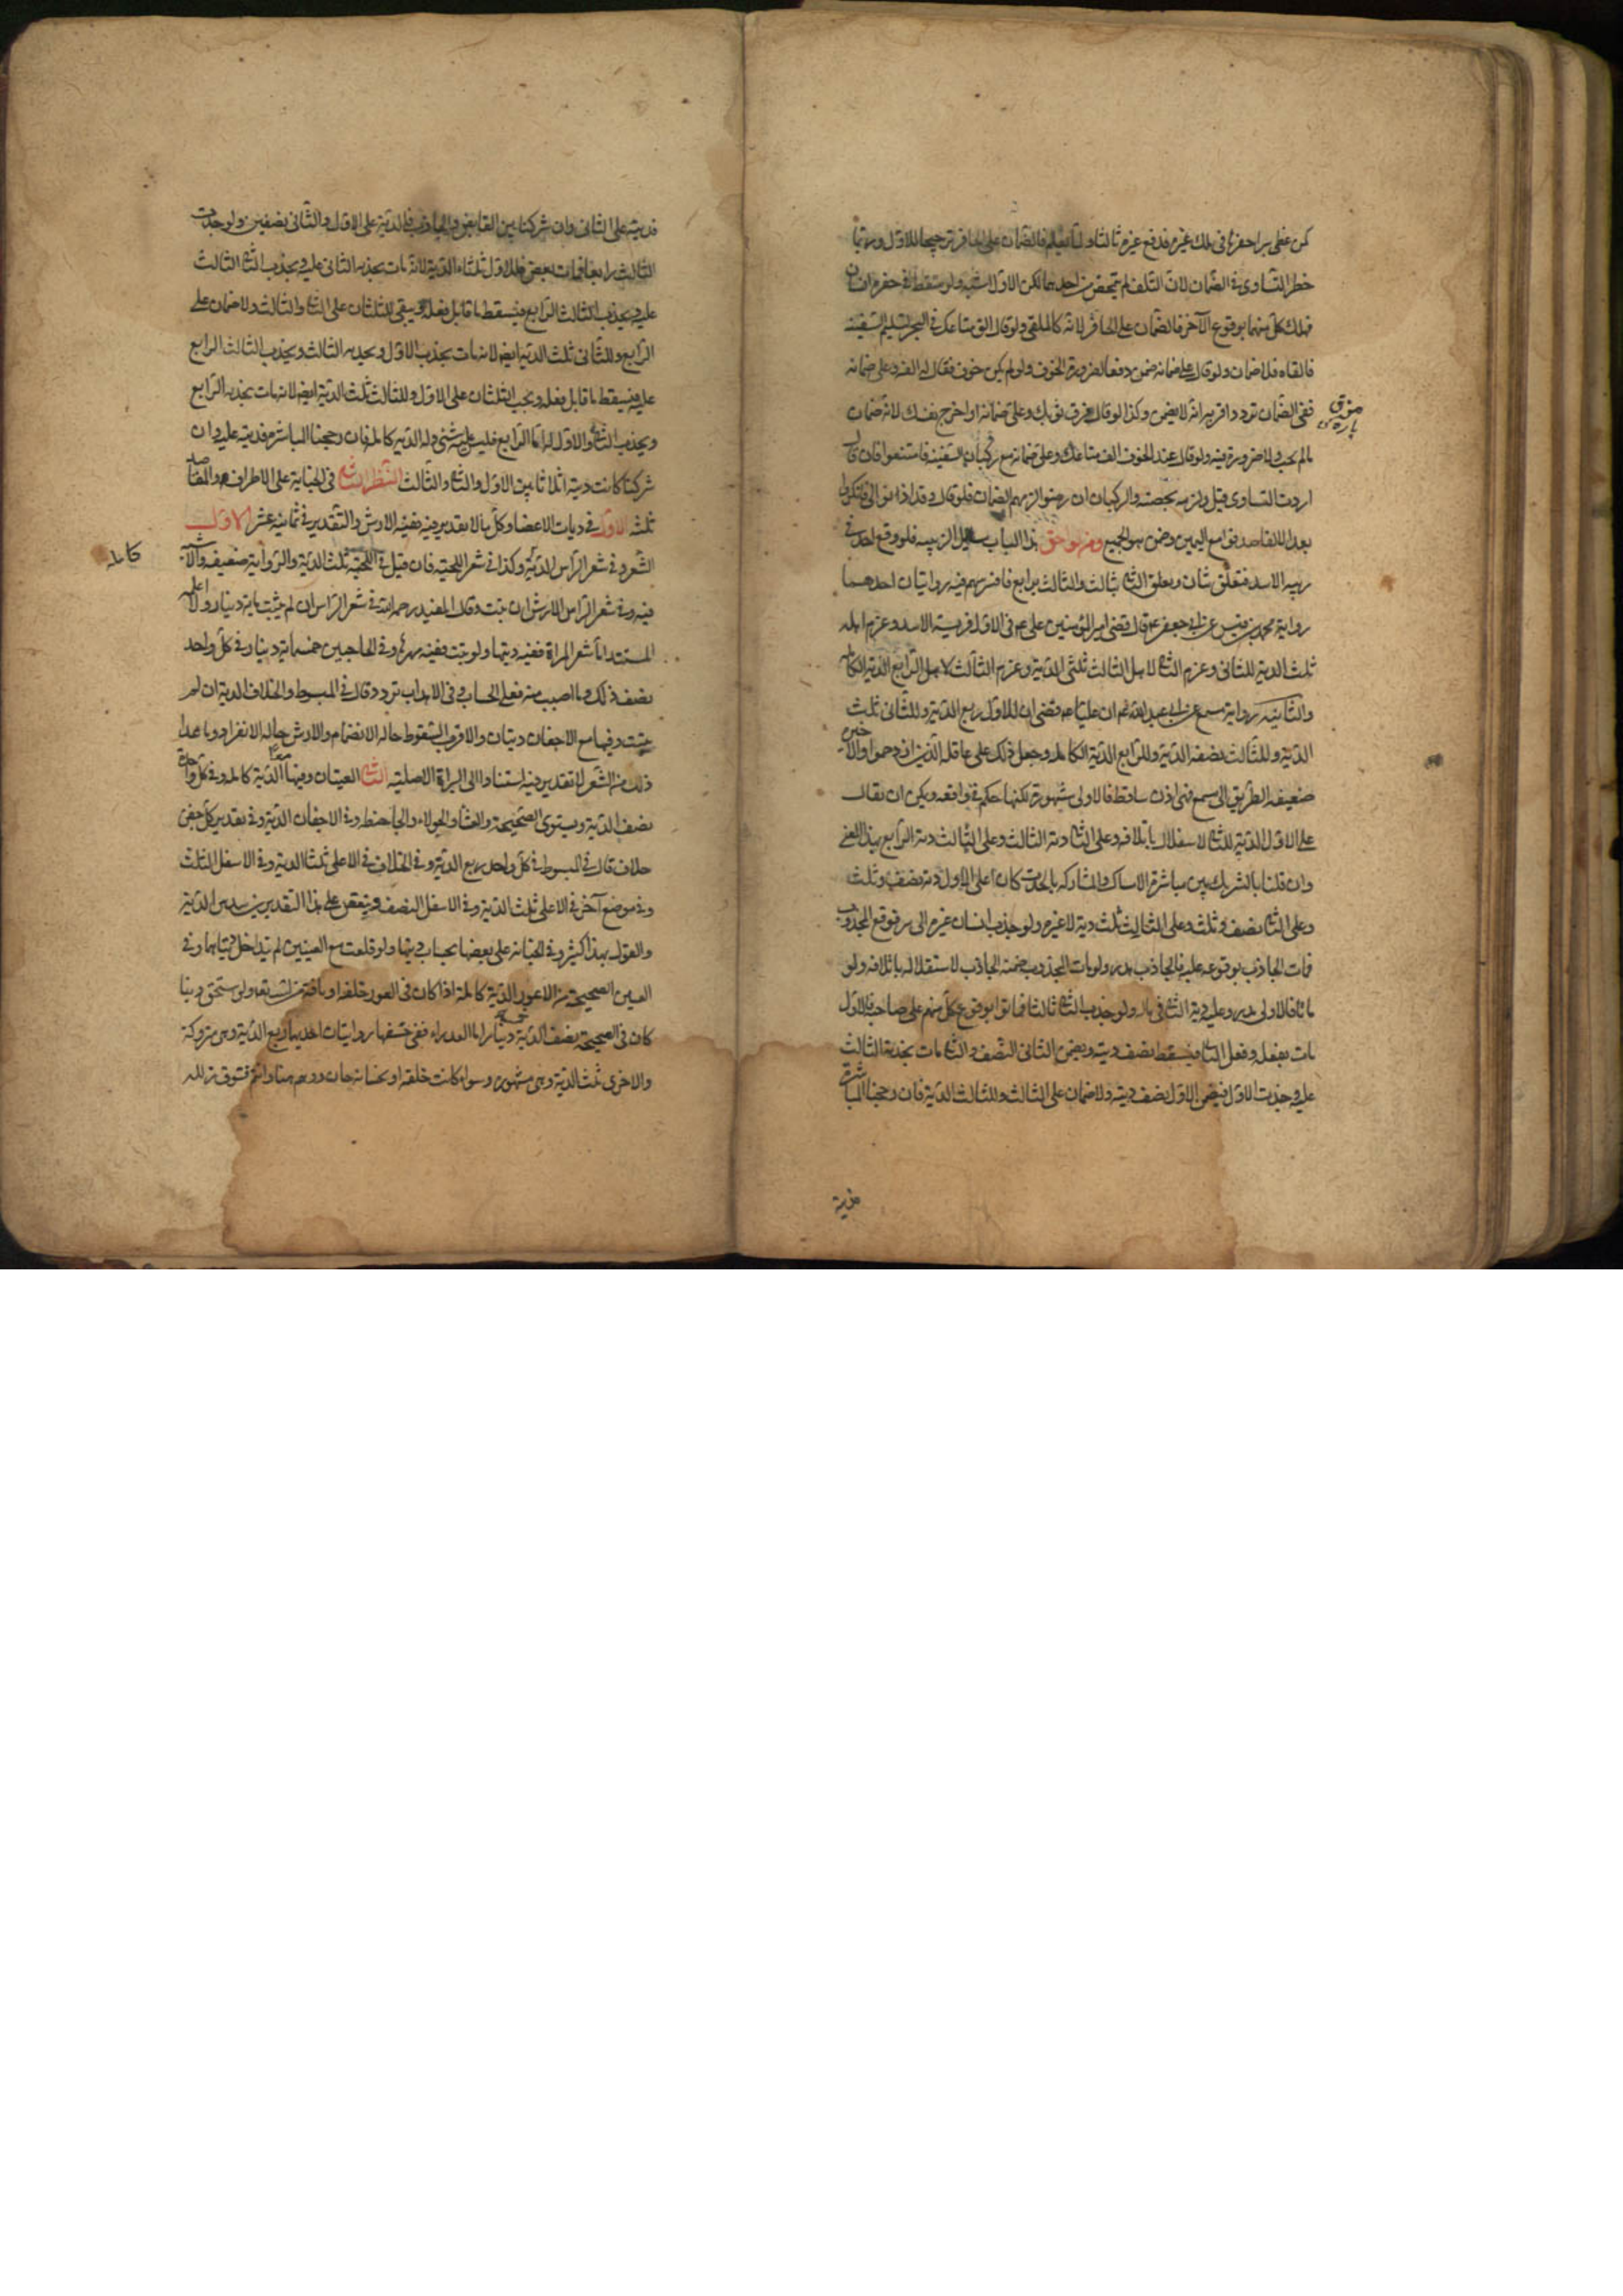 كمن غطى بئرا حفرها في ملك غيره فدفع غيره ثالثا ولما يعلم فالضمان على الحافر ترجيحا للاول وربما
خطر التساوى في الضمان لان التلف لم يتمحض من احدهما لكن الاول اشبه ولو سقط في حفرة اثنان
فهلك كل منهما بوقوع الآخر فالضمان على الحافر لانه كالملقى ولو قال الق متاعك في البحر لتسلم السفينة
فالقاه فلا ضمان ولو قال وعلى ضمانه ضمن دفعا لضرورة الخوف ولو لم يكن خوف فقال القه وعلى ضمانه
ففى الضمان تردد اقربه انه لا يضمن وكذا لو قال مزق ثوبك وعلى ضمانه او اجرح نفسك لانه ضمان
مالم يجب ولا ضرورة فيه ولو قال عند الخوف الق متاعك وعلى ضمانه مع ركبان السفينة فامتنعوا فان قال
اردت التساوى قبل ولزمه بحصته والركبان ان رضوا لزمهم الضمان فلو قال وقد اذنوا لى فانكروا
بعد الالقاء صدقوا مع اليمين وضمن هو الجميع ومن لواحق هذا الباب مسائل الزبية فلو وقع احد في
زبية الاسد فتعلق بثان وتعلق الثانى بثالث والثالث برابع فافترسهم فيه روايتان احدهما
رواية محمد بن قيس عن ابى جعفر ع قال قضى امير المؤمنين على ع في الاول فريسة الاسد وغرم اهله
ثلث الدية للثانى وغرم الثانى لاهل الثالث ثلثى الدية وغرم الثالث لاهل الرابع الدية الكاملة
والثانية رواية مسمع عن ابى عبد الله ع ان عليا ع قضى ان للاول ربع الدية وللثانى ثلث
الدية وللثالث نصف الدية وللرابع الدية الكاملة وجعل ذلك على عاقلة الذين ازدحموا والاخيرة
ضعيفة الطريق الى مسمع فهى اذن ساقطة فالاولى مشهورة لكنها حكم في واقعة ويمكن ان يقال
على الاول الدية للثانى لاستقلاله باتلافه وعلى الثانى دية الثالث وعلى الثالث دية الرابع بهذا المعنى
وان قلنا بالتشريك بين مباشرة الامساك والمشاركة بالجذب كان على الاول دية ونصف وثلث
وعلى الثانى نصف وثلث وعلى الثالث ثلث دية لا غير ولو جذب انسان غيره الى بئر فوقع المجذوب
فمات الجاذب بوقوعه عليه فالجاذب هدر ولو مات المجذوب ضمنه الجاذب لاستقلاله باتلافه ولو
ماتا فالاول هدر وعليه دية الثانى في ماله ولو جذب الثانى ثالثا فماتوا بوقوع كل منهم على صاحبه فالاول
مات بفعله وفعل الثانى فيسقط نصف ديته ويضمن الثانى النصف والثانى مات بجذبه الثالث
عليه وجذب الاول فيضمن الاول نصف ديته ولا ضمان على الثالث وللثالث الدية فان رجحنا المباشرة
فديته على الثانى وان شركنا بين القابض والجاذب فالدية على الاول والثانى نصفين ولو جذب
الثالث رابعا فمات بعض على بعض فللاول ثلثا الدية لانه مات بجذبه الثانى عليه وبجذب الثانى الثالث
عليه وبجذب الثالث الرابع فيسقط ما قابل فعله ويبقى الثلثان على الثانى والثالث ولا ضمان على
الرابع وللثانى ثلثا الدية ايضا لانه مات بجذب الاول وبجذبه الثالث وبجذب الثالث الرابع
عليه فيسقط ما قابل فعله ويجب الثلثان على الاول والثالث وللثالث ثلثا الدية ايضا لانه مات بجذبه الرابع
وبجذب الثانى والاول له اما الرابع فليس عليه شئ وله الدية كاملة فان رجحنا المباشرة فديته عليه وان
شركنا كانت ديته اثلاثا بين الاول والثانى والثالث النظر الثالث في الجناية على الاطراف والمقاصد
ثلثه الاول في ديات الاعضاء وكل ما لا تقدير فيه ففيه الارش والتقدير في ثمانية عشر الاول
الشعر وفي شعر الراس الدية وكذا في شعر اللحية فان نبت قيل في اللحية ثلث الدية والرواية ضعيفة والاشبه
فيه وفى شعر الراس الارش ان نبت وقال المفيد رحمه الله في شعر الراس ان لم ينبت مائة دينار ولا اعلم
المستند اما شعر المراة ففيه ديتها ولو نبت ففيه مهرها وفي الحاجبين خمسمائة دينار وفى كل واحد
نصف ذلك وما اصيب منه فعلى الحساب وفى الاهداب تردد قال في المبسوط والخلاف الدية ان لم
ينبت وفيها مع الاجفان ديتان والاقرب السقوط حالة الانضمام والارش حالة الانفراد وما عدا
ذلك من الشعر لا تقدير فيه استنادا الى البراءة الاصلية الثانى العينان وفيهما معا الدية كاملة وفى كل واحدة
نصف الدية ويستوى الصحيحة والعمشاء والحولاء والجاحظة وفى الاجفان الدية وفى تقدير كل جفن
خلاف قال في المبسوط في كل واحد ربع الدية وفى الخلاف في الاعلى ثلثا الدية وفى الاسفل الثلث
وفى موضع آخر في الاعلى ثلث الدية وفى الاسفل النصف وينقص على هذا التقدير سدس الدية
والقول بهذا كثير وفى الجناية على بعضها بحساب ديتها ولو قلعت مع العينين لم يتداخل ديتاهما وفى
العين الصحيحة من الاعور الدية كاملة اذا كان في العور خلقة او بآفة من الله تعالى ولو استحق ديتها
كان في الصحيحة نصف الدية
والاخرى ثلث الدية وهى مشهورة وسواء كانت خلقة او بجناية جان
مزق
كاملة
فديته